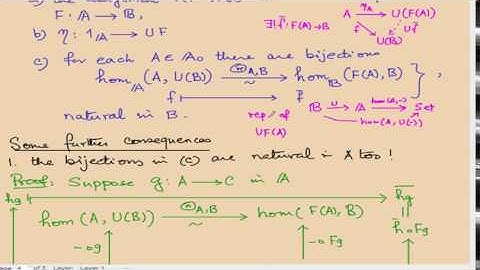 F : 𝔸 → 𝔹,
∃! f̄ : F(A)→B
A →^{η_A} U(F(A))
f
U f̄
U(B)
b) η : 1_𝔸 → UF
c) for each A ∈ 𝔸₀ there are bijections
hom_𝔸 (A, U(B)) →^{(‾)_{A,B}} ~ hom_𝔹 (F(A), B) } ,
f ↦ f̄
natural in B.
rep. of UF(A)
𝔹 →^U 𝔸 →^{hom(A,-)} Set
hom(A, U(-))
Some further consequences
1. the bijections in (c) are natural in A too!
Proof. Suppose g : A → C in 𝔸
hg
\overline{hg}
hom (A, U(B)) →^{(‾)_{A,B}} ~ hom( F(A), B)
=
h̄∘Fg
-∘g
-∘Fg